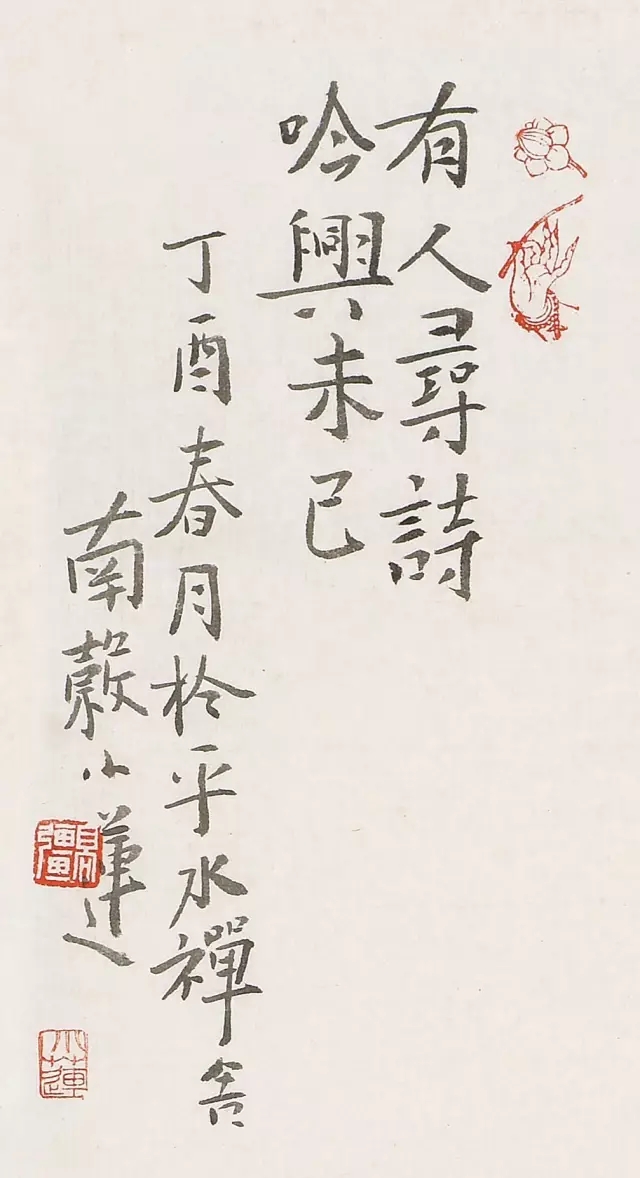 有人尋詩
吟興未已
丁酉春月於平水禪舍
南穀小蓮
小蓮